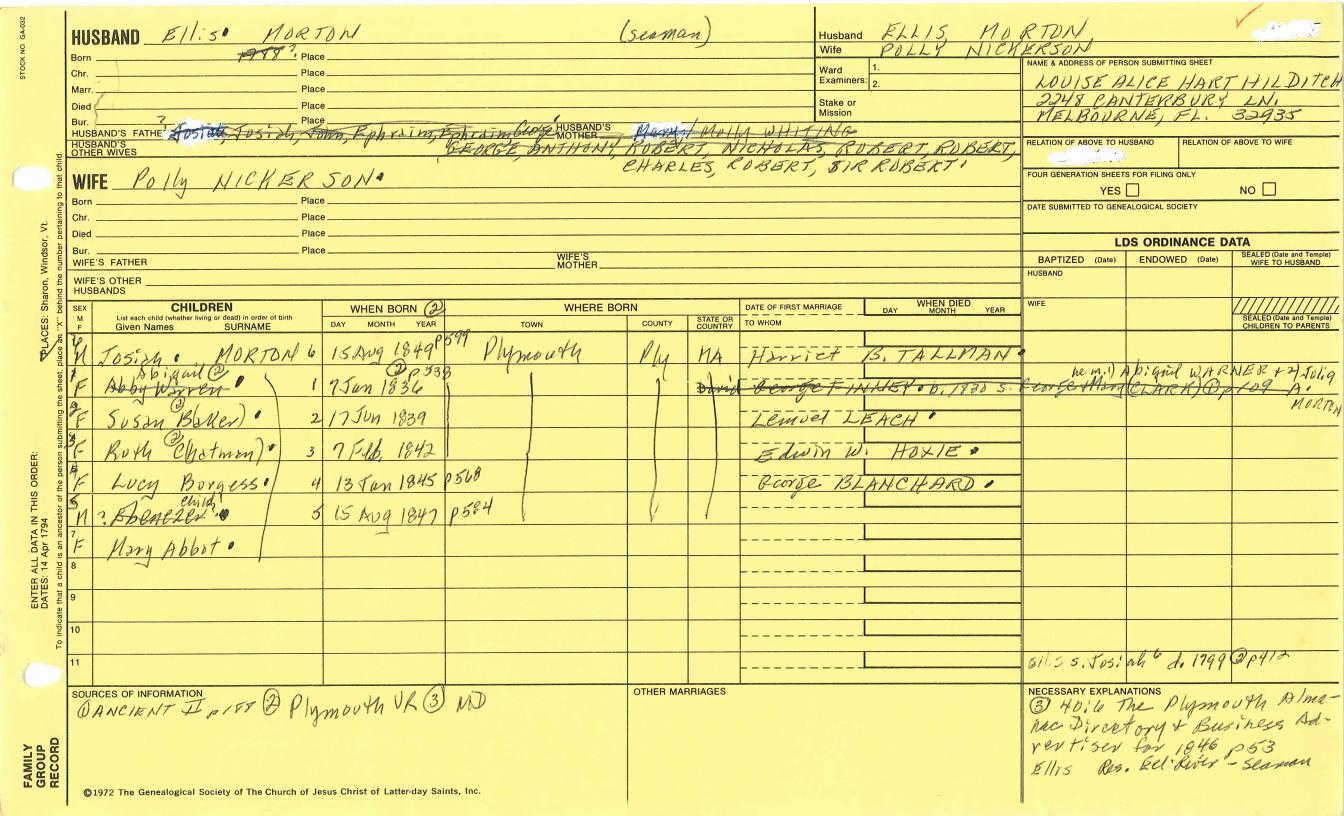 STOCK NO. GA-032
HUSBAND Ellis MORTON (seaman)
Born 1788? Place
Chr. Place
Marr. Place
Died Place
Bur. ? Place
HUSBAND'S FATHER Josiah, Josiah, John, Ephraim, Ephraim, George HUSBAND'S MOTHER Mary/ Molly WHITING
HUSBAND'S OTHER WIVES GEORGE, ANTHONY, ROBERT, NICHOLAS, ROBERT, ROBERT,
CHARLES, ROBERT, SIR ROBERT
WIFE Polly NICKERSON
Born Place
Chr. Place
Died Place
Bur. Place
WIFE'S FATHER WIFE'S MOTHER
WIFE'S OTHER HUSBANDS
Husband ELLIS MORTON
Wife POLLY NICKERSON
Ward Examiners: 1.
2.
Stake or Mission
NAME & ADDRESS OF PERSON SUBMITTING SHEET
LOUISE ALICE HART HILDITCH
2248 CANTERBURY LN.
MELBOURNE, FL. 32935
RELATION OF ABOVE TO HUSBAND RELATION OF ABOVE TO WIFE
FOUR GENERATION SHEETS FOR FILING ONLY
YES NO
DATE SUBMITTED TO GENEALOGICAL SOCIETY
LDS ORDINANCE DATA
BAPTIZED (Date) ENDOWED (Date) SEALED (Date and Temple) WIFE TO HUSBAND
HUSBAND
WIFE
SEALED (Date and Temple) CHILDREN TO PARENTS
SEX M F CHILDREN WHEN BORN ② WHERE BORN DATE OF FIRST MARRIAGE WHEN DIED
List each child (whether living or dead) in order of birth
Given Names SURNAME DAY MONTH YEAR TOWN COUNTY STATE OR COUNTRY TO WHOM DAY MONTH YEAR
6 M Josiah MORTON 6 15 Aug 1849 p599 Plymouth Ply MA Harriet B. TALLMAN
Abigail ② ② p538 he m.1) Abigail WARNER + 2) Julia
1 F Abby Warren 1 7 Jan 1836 David George FINNEY b. 1830 s. George + Mary (CLARK) ① p109 A.
MORTON
2 F Susan Baker) ② 2 17 Jun 1839 Lemuel LEACH
3 F Ruth Chatman) ② 3 7 Feb. 1842 Edwin W. HOXIE
4 F Lucy Borgess 4 13 Jan 1845 p568 George BLANCHARD
child
5 M ? Ebenezer 5 15 Aug 1847 p584
7 F Mary Abbot
8
9
10
11 Ellis s. Josiah 6 d. 1799 ② p412
SOURCES OF INFORMATION
① ANCIENT II p188 ② Plymouth VR ③ MD
OTHER MARRIAGES
NECESSARY EXPLANATIONS
③ 40:6 The Plymouth Alma-
nac Directory + Business Ad-
vertiser for 1846 p53
Ellis Res. Eel River - Seaman
©1972 The Genealogical Society of The Church of Jesus Christ of Latter-day Saints, Inc.
FAMILY GROUP RECORD
ENTER ALL DATA IN THIS ORDER:
DATES: 14 Apr 1794
PLACES: Sharon, Windsor, Vt.
To indicate that a child is an ancestor of the person submitting the sheet, place an "X" behind the number pertaining to that child